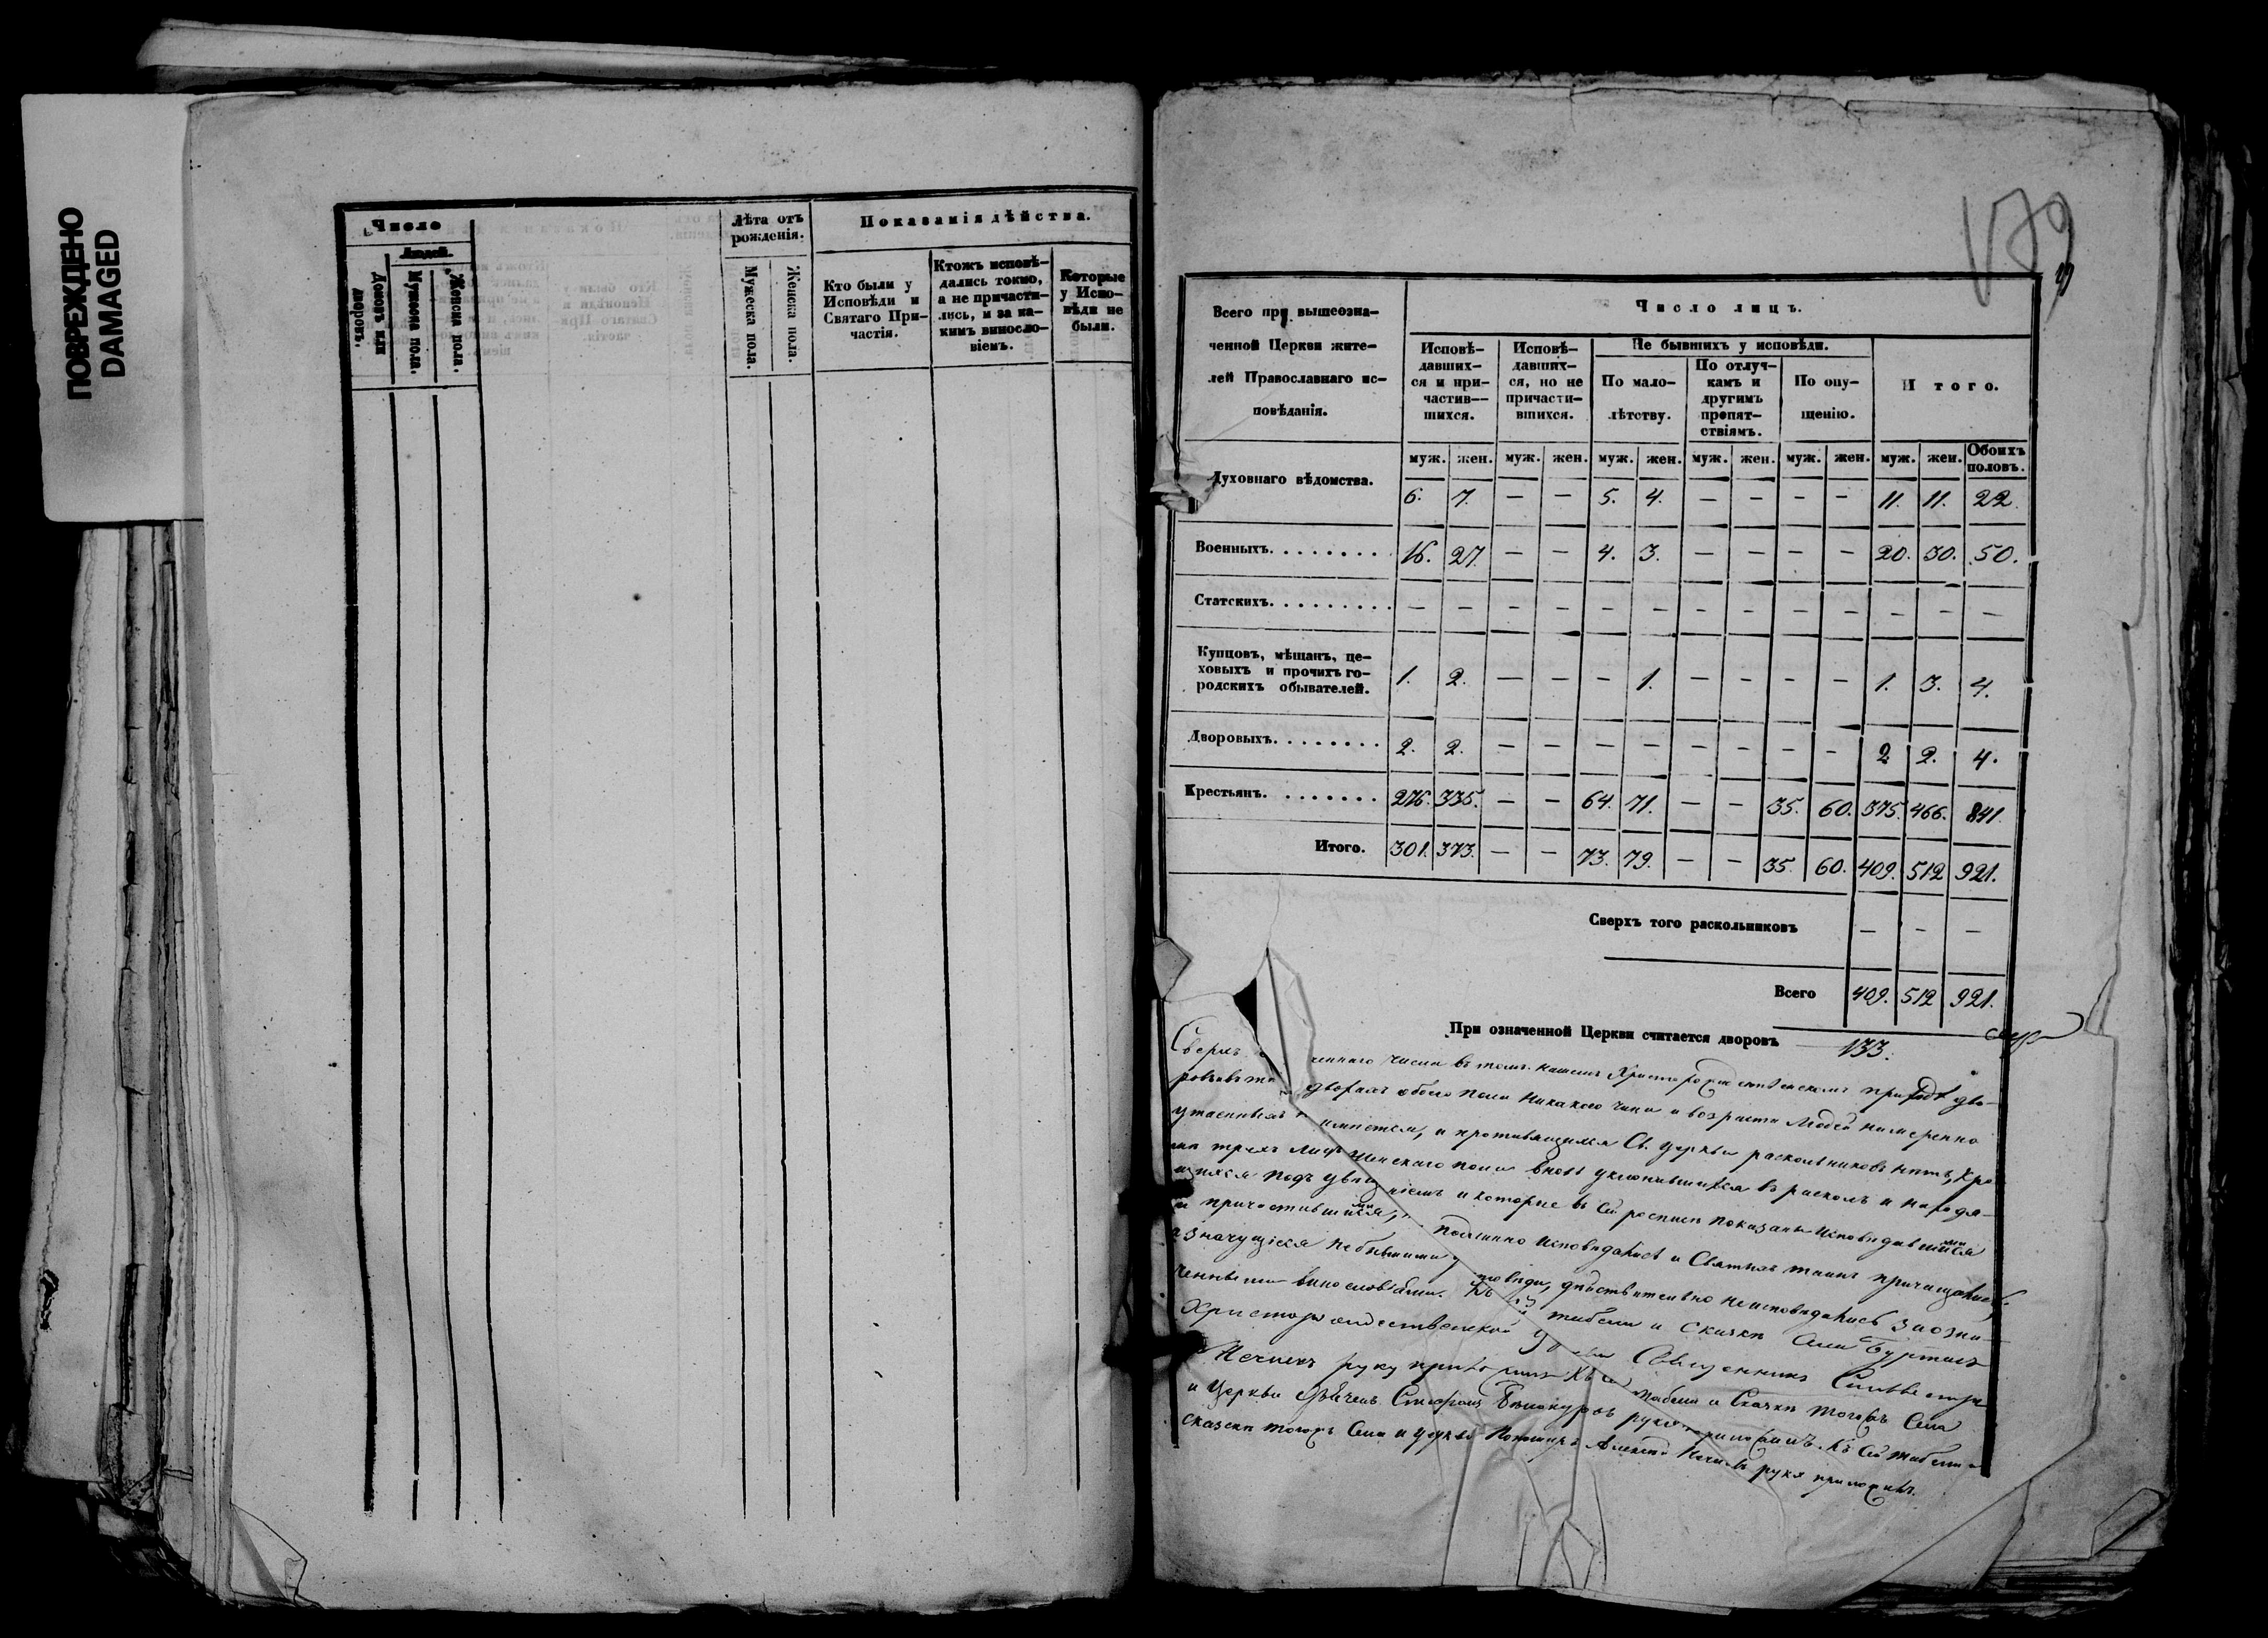 ПОВРЕЖДЕНО
DAMAGED
Число
Людей.
Домовъ или дворовъ.
Мужеска пола.
Женска пола.
Лѣта отъ рожденія.
Мужеска пола
Женска пола.
Показанія дѣйства.
Кто были у
Исповѣди и
Святаго При-
частія.
Ктожъ исповѣ-
дались токмо,
а не причасти-
лись, и за ка-
кимъ винословіемъ.
Которые
у Испо-
вѣди не
были.
179
Всего при вышеозна-
ченной Церкви жите-
лей Православнаго ис-
повѣданія.
Число лицъ.
Исповѣ-
давших-
ся и при-
частив-
шихся.
Исповѣ-
давших-
ся, но не
причасти-
вшихся.
Не бывшихъ у исповѣди.
По мало-
лѣтству.
По отлуч-
камъ и
другимъ
препят-
ствіямъ.
По опу-
щенію.
Итого.
муж. жен. муж. жен. муж. жен. муж. жен. муж. жен. муж. жен. Обоихъ половъ.
Духовнаго вѣдомства. 6. 7. — — 5. 4. — — — — 11. 11. 22.
Военныхъ. . . . . . . . 16. 27. — — 4. 3. — — — — 20. 30. 50.
Статскихъ. . . . . . . . . — — — — — — — — — — — — —
Купцовъ, мѣщанъ, це-
ховыхъ и прочихъ го-
родскихъ обывателей. 1. 2. — — — 1. — — — — 1. 3. 4.
Дворовыхъ. . . . . . . . 2. 2. — — — — — — — — 2 2. 4.
Крестьянъ. . . . . . . . 276. 335. — — 64. 71. — — 35. 60. 375. 466. 841.
Итого. 301. 373. — — 73. 79. — — 35. 60. 409. 512 921.
Сверхъ того раскольниковъ — — —
Всего 409. 512 921.
При означенной Церкви считается дворовъ 133.
Сверхъ ченнаго числа въ томъ нашемъ Христорождественскомъ приходѣ дво-
дворахъ обоего пола никакого чина и возраста людей намеренно
утаенныхъ и противящихся Св. Церкви раскольниковъ нѣтъ, кро
ма трехъ лицъ женскаго пола вновь уклонившихся въ расколъ и находя-
щихся подъ и которые въ сей росписи показаны исповѣдавшимися
и причастившимися, подлинно исповѣдались и Святыхъ таинъ причащались,
а значущіеся небывшими у исповѣди, действительно неисповѣдались за озна-
ченными винословіями. Къ сей табели и сказкѣ села
Христорождественской церкви Священникъ Сильвестръ
руку приложилъ. Къ сей табели и Сказкѣ тогожъ Села
и Церкви Стефанъ руку приложилъ. Къ сей табели и
сказкѣ тогожъ Села и Церкви Пономарь руку приложилъ.